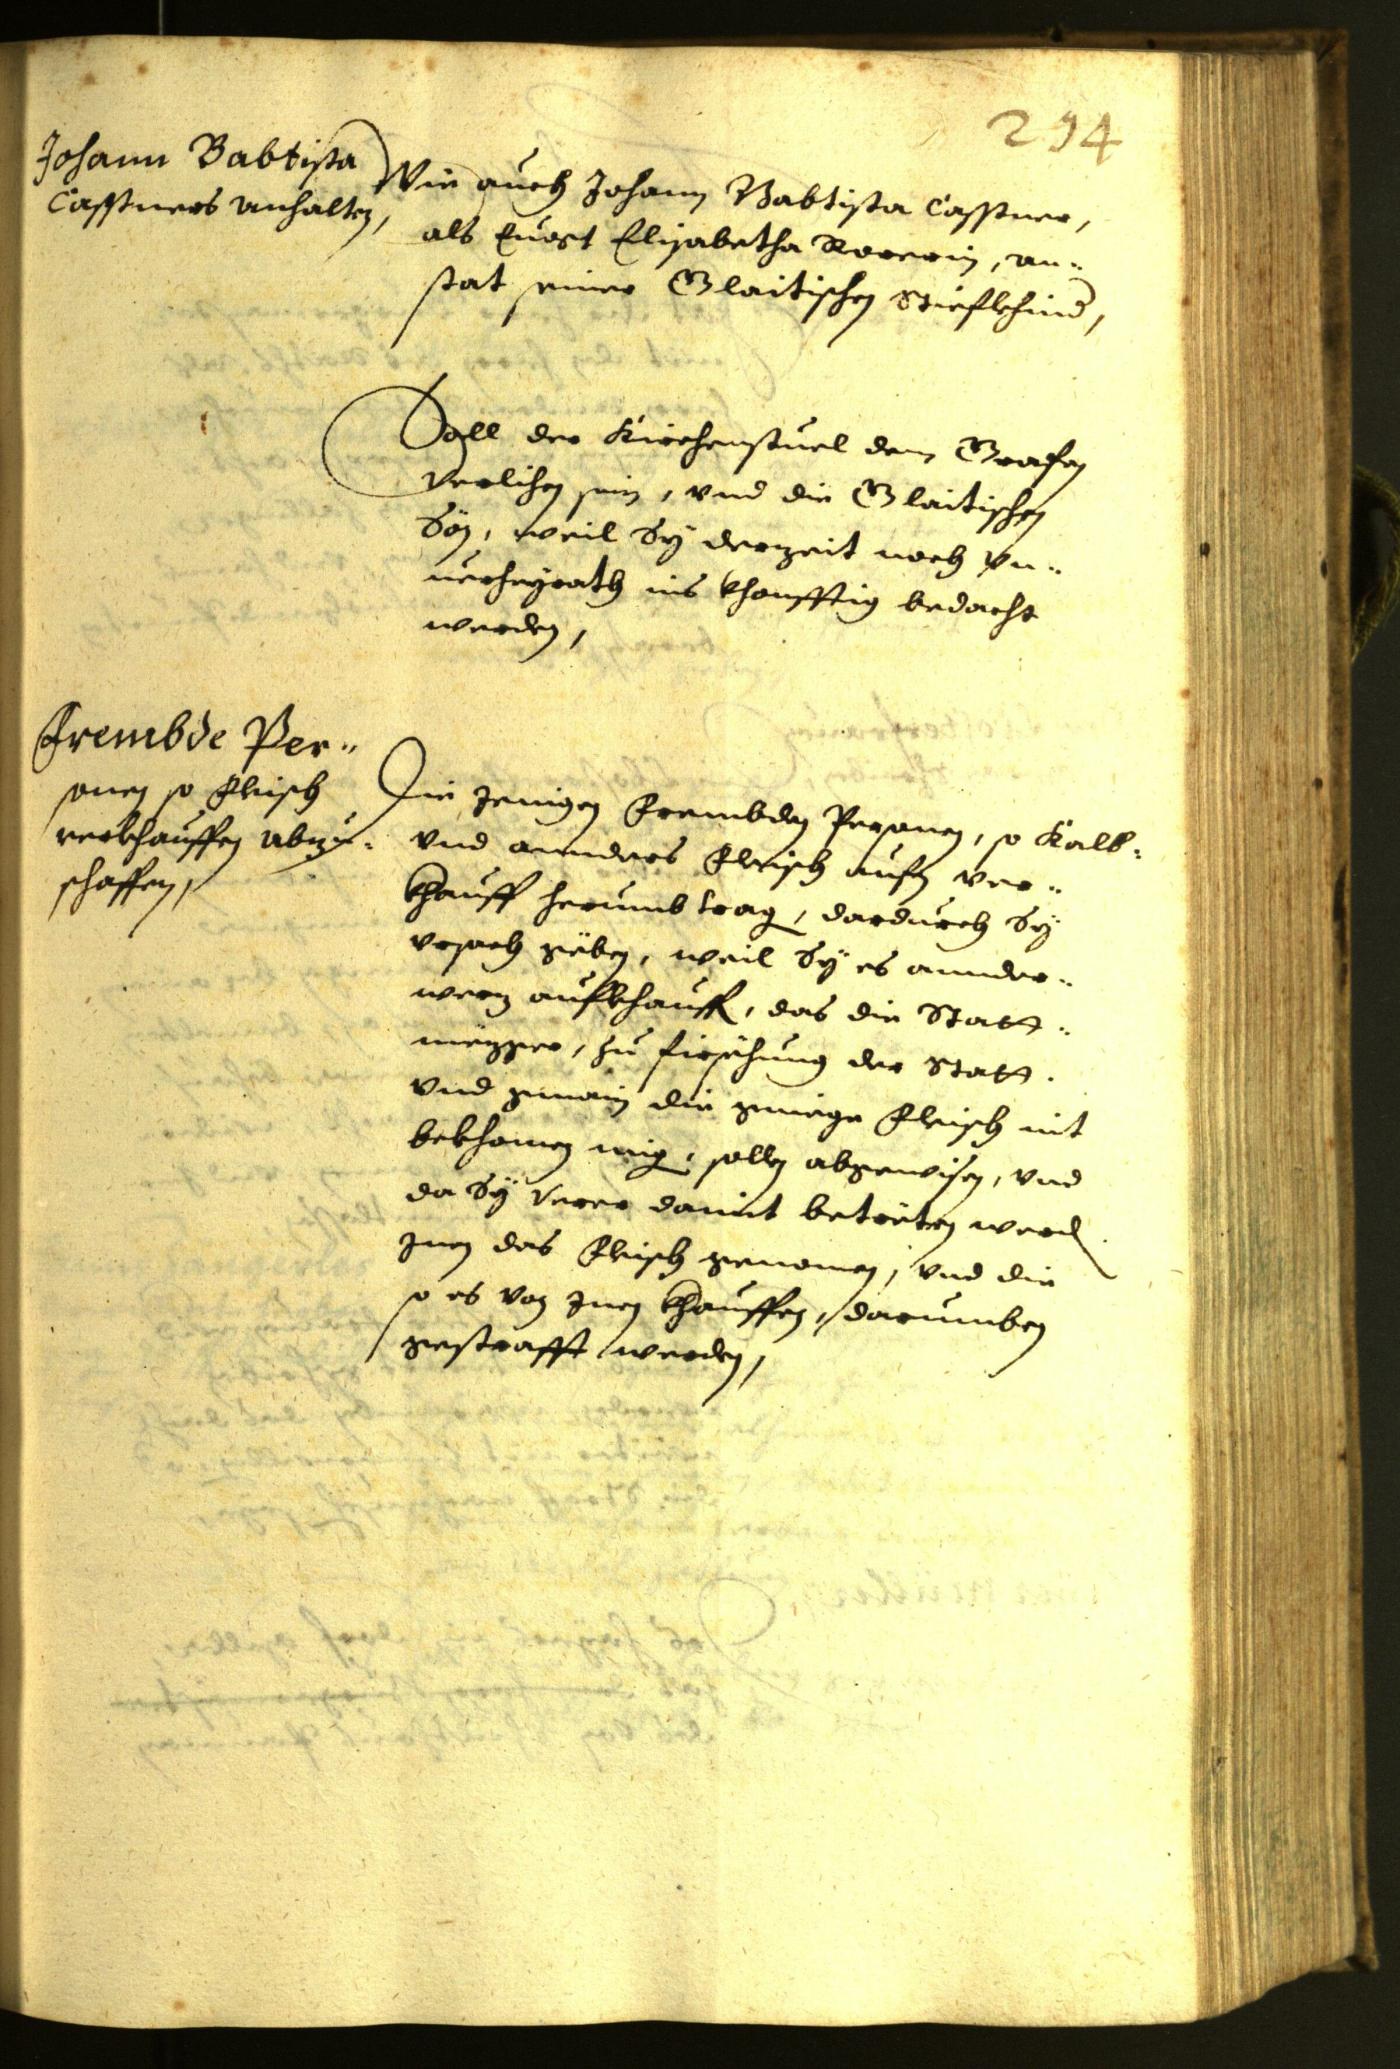 294
Johann Babtista
Casstners anhalten,
Wie auch Johann Babtista Casstner,
als Elisabetha, an-
stat seiner Glaitischen Stiefkhind,
Soll der Kirchenstuel dem Grafen
verlihen sein, vnd die Glaitischen
Sön, weil Sÿ derzeit noch vn-
uerheÿrath ins khonfftig bedacht
werden,
Frembde Per-
sonen so fleisch
verkhauffen abzu-
schaffen,
Die Jenigen Frembden Personen, so Kalb-
vnd annders fleisch aufn ver-
khauff herumb trag, dardurch Sÿ
vrsach geben, weil Sÿ es annder-
werz aufkhauff, das die Statt-
mezger, zu firsehung der Statt
vnd gmain die gnuege fleisch nit
bekhomen mig, sollen abgewisen, vnd
da Sÿ verer damit betreten werd
Inen das fleisch genomen, vnd die
so es von Inen khauffen, darumben
gestrafft werden,